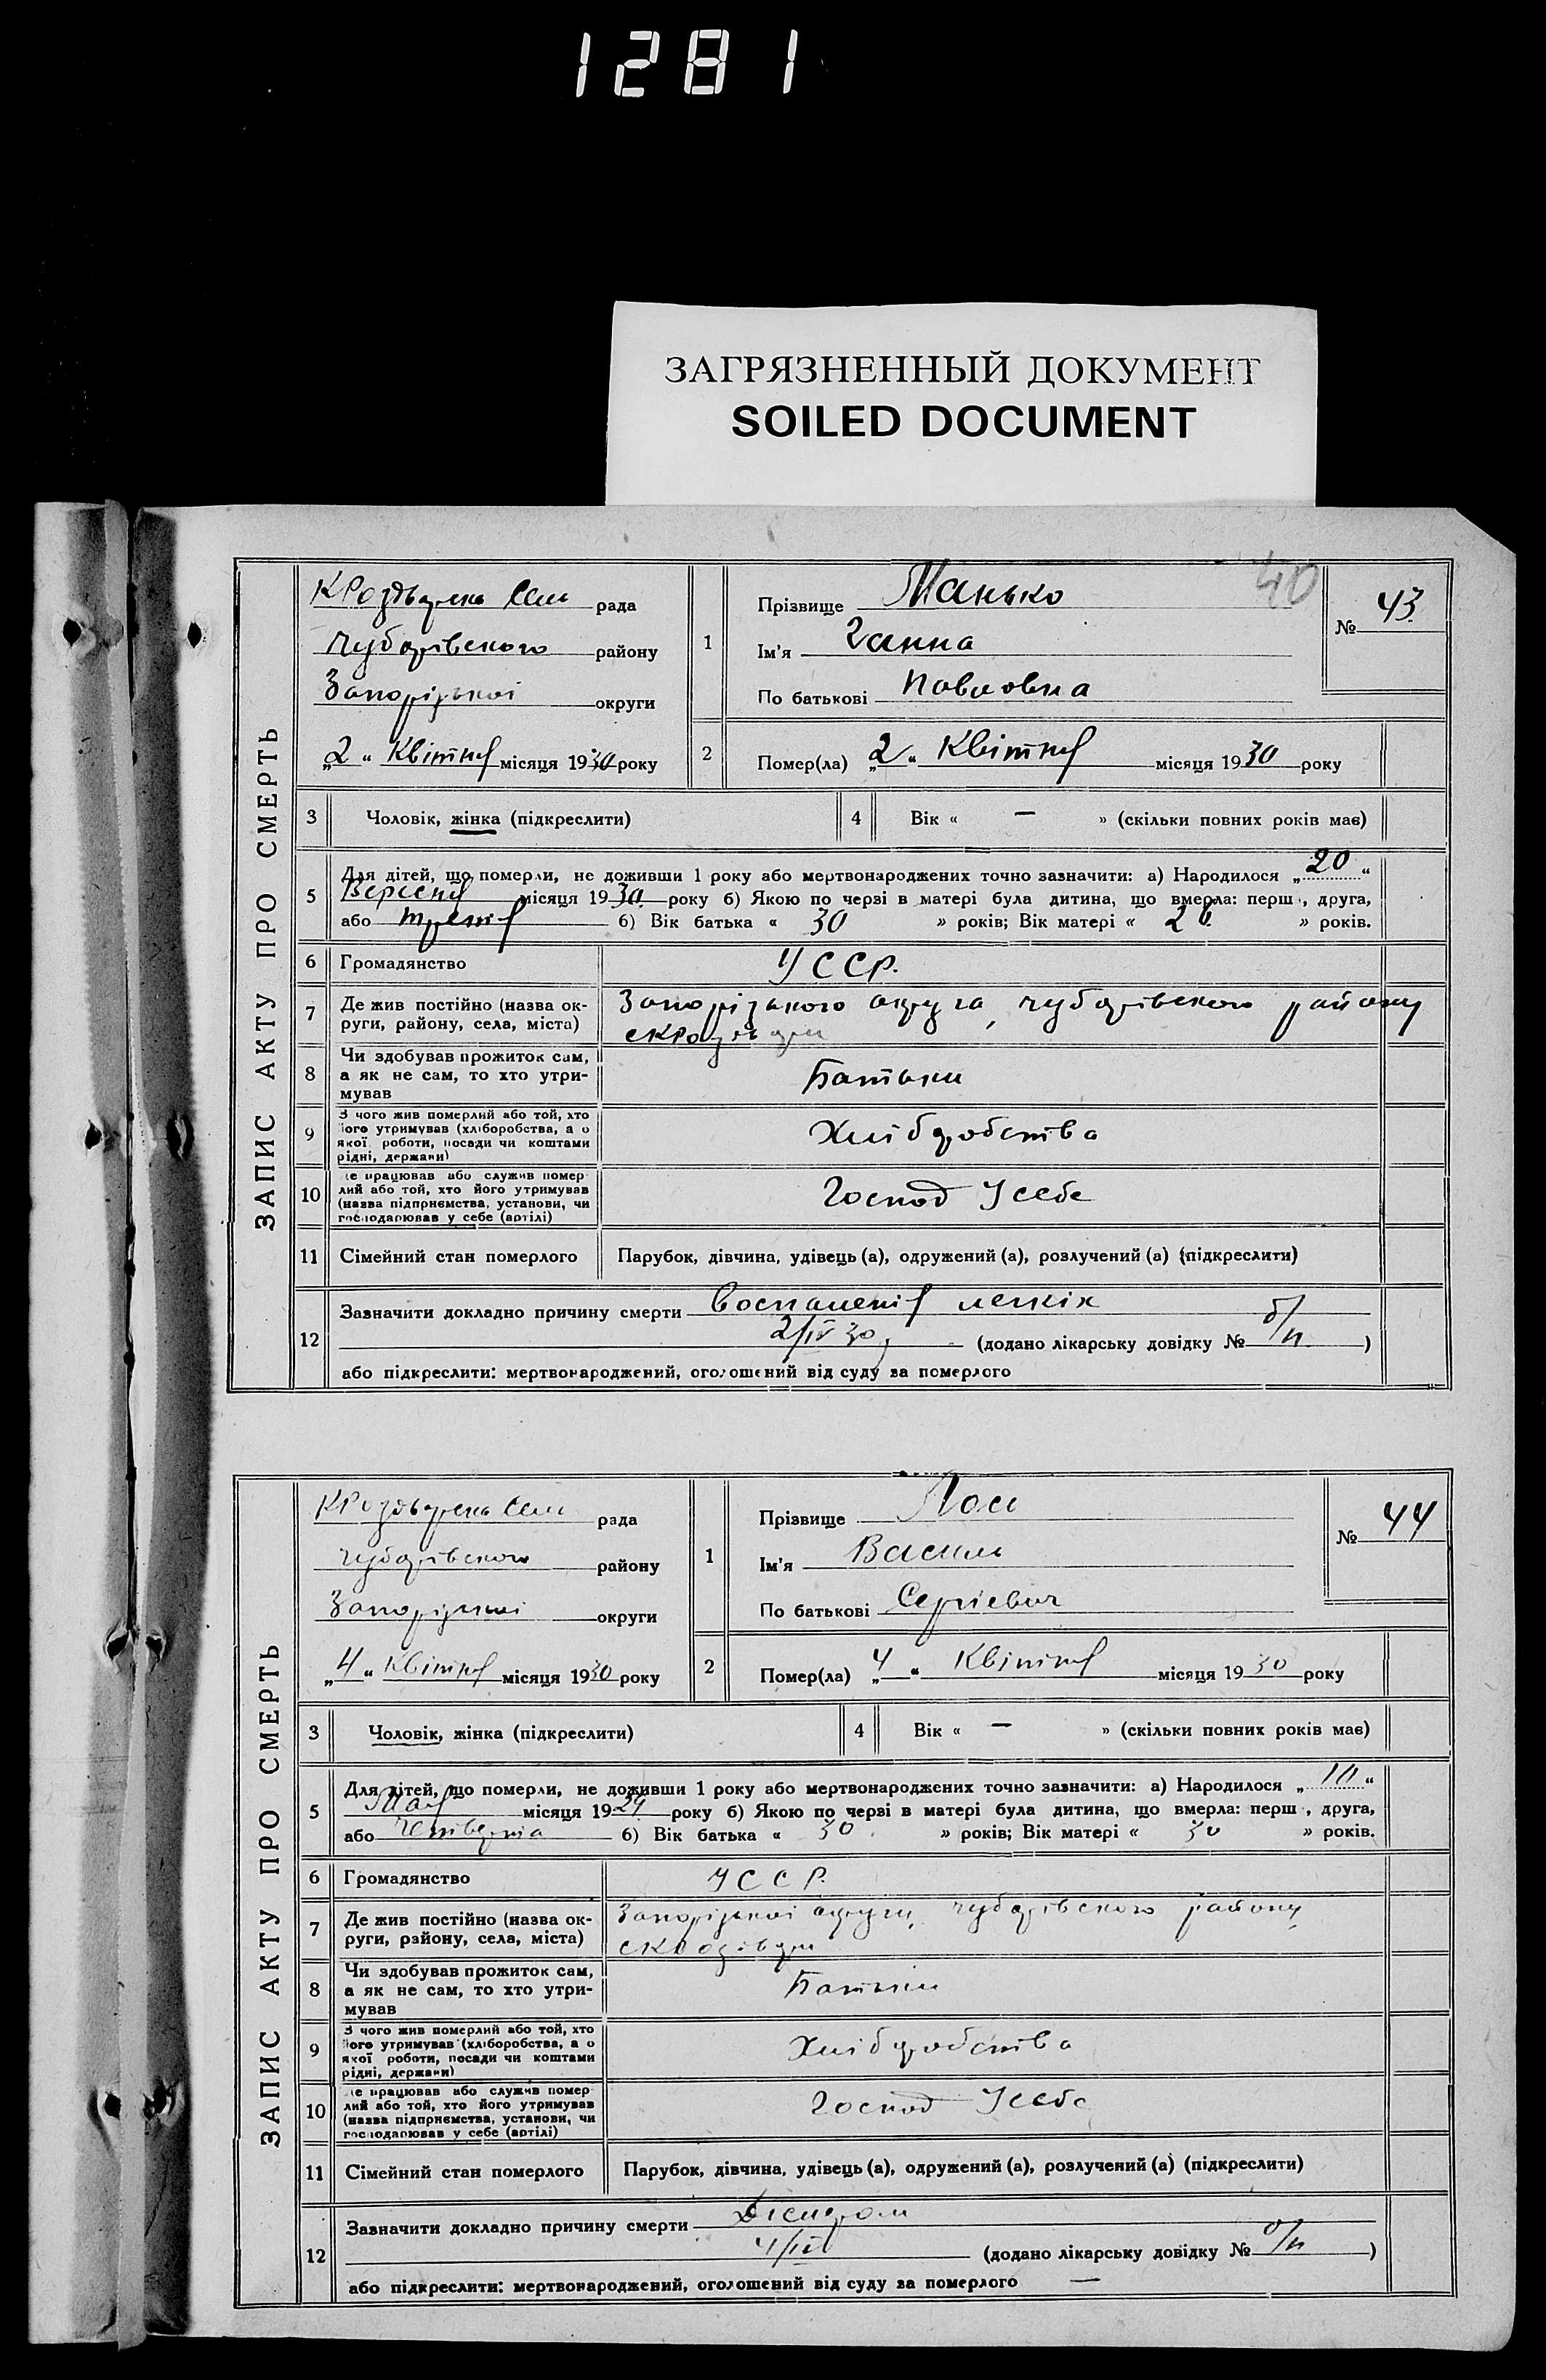 1281
ЗАГРЯЗНЕННЫЙ ДОКУМЕНТ
SOILED DOCUMENT
40
ЗАПИС АКТУ ПРО СМЕРТЬ
рада
Чубарівського району
Запорізької округи
„2“ Квітня місяця 1930 року
1
Прізвище Манько
Ім'я Ганна
По батькові Павловна
№ 43
2
Помер(ла) „2“ Квітня місяця 1930 року
3 Чоловік, жінка (підкреслити)
4 Вік « — » (скільки повних років має)
5 Для дітей, що померли, не доживши 1 року або мертвонароджених точно зазначити: а) Народилося „20“
Вересня місяця 1930 року б) Якою по черзі в матері була дитина, що вмерла: перш , друга,
або третя б) Вік батька « 30 » років; Вік матері « 26 » років.
6 Громадянство УССР.
7 Де жив постійно (назва ок-
руги, району, села, міста)
Запорізького округа, Чубарівского району
8 Чи здобував прожиток сам,
а як не сам, то хто утри-
мував
Батьки
9 З чого жив померлий або той, хто
його утримував (хліборобства, а о
якої роботи, посади чи коштами
рідні, держави)
Хліборобства
10 е працював або служив помер
лий або той, хто його утримував
(назва підприємства, установи, чи
господарював у себе (артілі)
Господ У себе
11 Сімейний стан померлого Парубок, дівчина, удівець (а), одружений (а), розлучений (а) (підкреслити)
12 Зазначити докладно причину смерти Воспаления легкіх
2/IV 30 (додано лікарську довідку № б/н )
або підкреслити: мертвонароджений, оголошений від суду за померлого
ЗАПИС АКТУ ПРО СМЕРТЬ
рада
Чубарівського району
Запорізької округи
„4“ Квітня місяця 1930 року
1
Прізвище
Ім'я Василь
По батькові Сергієвич
№ 44
2
Помер(ла) „4“ Квітня місяця 1930 року
3 Чоловік, жінка (підкреслити)
4 Вік « — » (скільки повних років має)
5 Для дітей, що померли, не доживши 1 року або мертвонароджених точно зазначити: а) Народилося „10“
Мая місяця 1929 року б) Якою по черзі в матері була дитина, що вмерла: перш , друга,
або б) Вік батька « 30 » років; Вік матері « 30 » років.
6 Громадянство УССР.
7 Де жив постійно (назва ок-
руги, району, села, міста)
Запорізької округи, Чубарівского району
8 Чи здобував прожиток сам,
а як не сам, то хто утри-
мував
Батьки
9 З чого жив померлий або той, хто
його утримував (хліборобства, а о
якої роботи, посади чи коштами
рідні, держави)
Хліборобства
10 е працював або служив помер
лий або той, хто його утримував
(назва підприємства, установи, чи
господарював у себе (артілі)
Господ У себе
11 Сімейний стан померлого Парубок, дівчина, удівець (а), одружений (а), розлучений (а) (підкреслити)
12 Зазначити докладно причину смерти
4/IV (додано лікарську довідку № б/н )
або підкреслити: мертвонароджений, оголошений від суду за померлого —